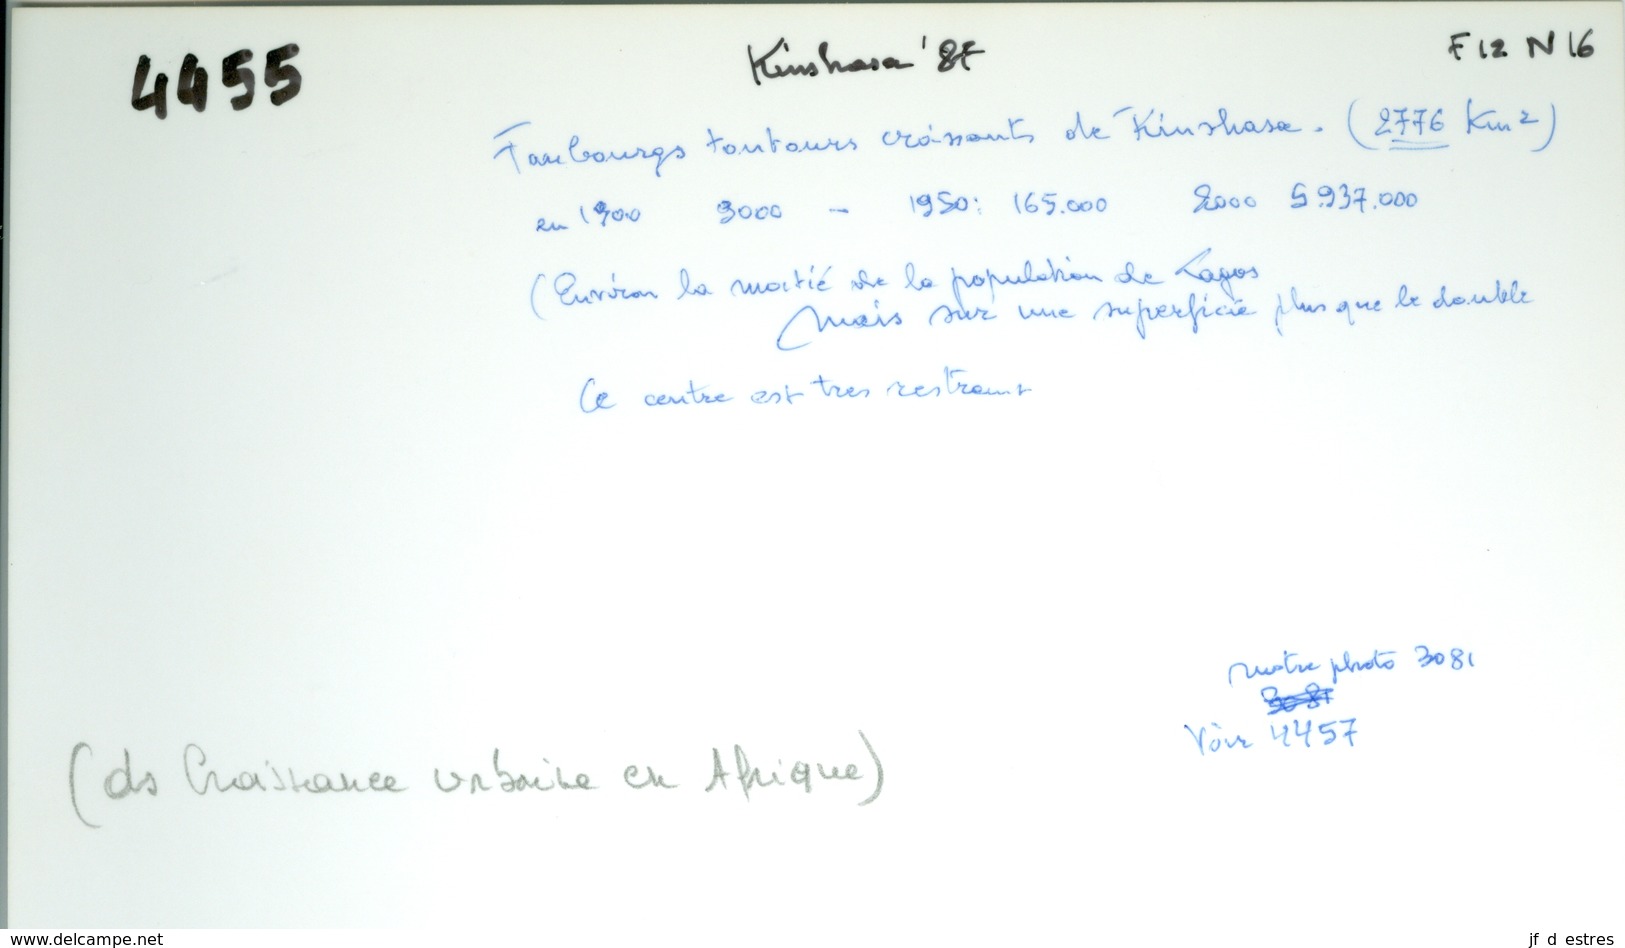 4455
Kinshasa '87
F12 N 16
Faubourgs toutours croissants de Kinshasa. (2776 Km²)
en 1900 3000 - 1950: 165.000 2000 5.937.000
(Environ la moitié de la population de Lagos
mais sur une superficie plus que le double
Ce centre est tres restreint
notre photo 3081
3081
Voir 4457
(ds Croissance urbaine en Afrique)
www.delcampe.net
jf d estres